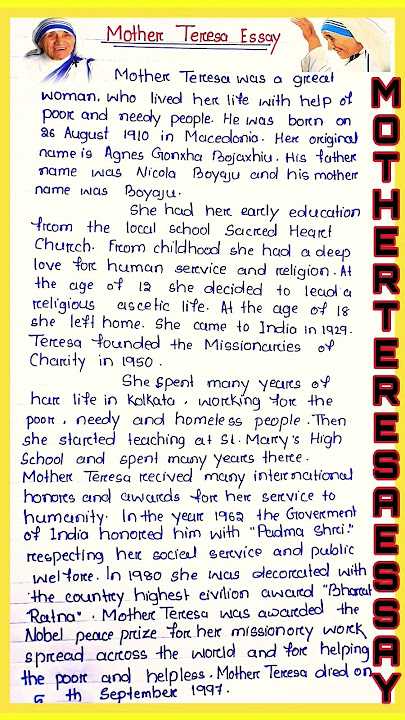 Mother Teresa Essay
Mother Teresa was a great
woman, who lived her life with help of
poor and needy people. He was born on
26 August 1910 in Macedonia. Her original
name is Agnes Gonxha Bojaxhiu. His father
name was Nicola Boyaju and his mother
name was Boyaju.
She had her early education
from the local school Sacred Heart
Church. From childhood she had a deep
love for human service and religion. At
the age of 12 she decided to lead a
religious ascetic life. At the age of 18
she left home. She came to India in 1929.
Teresa founded the Missionaries of
Charity in 1950.
She spent many years of
har life in Kolkata, working for the
poor, needy and homeless people. Then
she started teaching at St. Marry's High
School and spent many years there.
Mother Teresa recived many international
honors and awards for her service to
humanity. In the year 1962 the Goverment
of India honored him with "Padma Shri."
respecting her social service and public
welfore. In 1980 she was decorated with
the country highest civilion award "Bharat
Ratna". Mother Teresa was awarded the
Nobel peace prize for her missionory work
spread across the world and for helping
the poor and helpless. Mother Teresa died on
5 th September 1997.
MOTHERTERESAESSAY